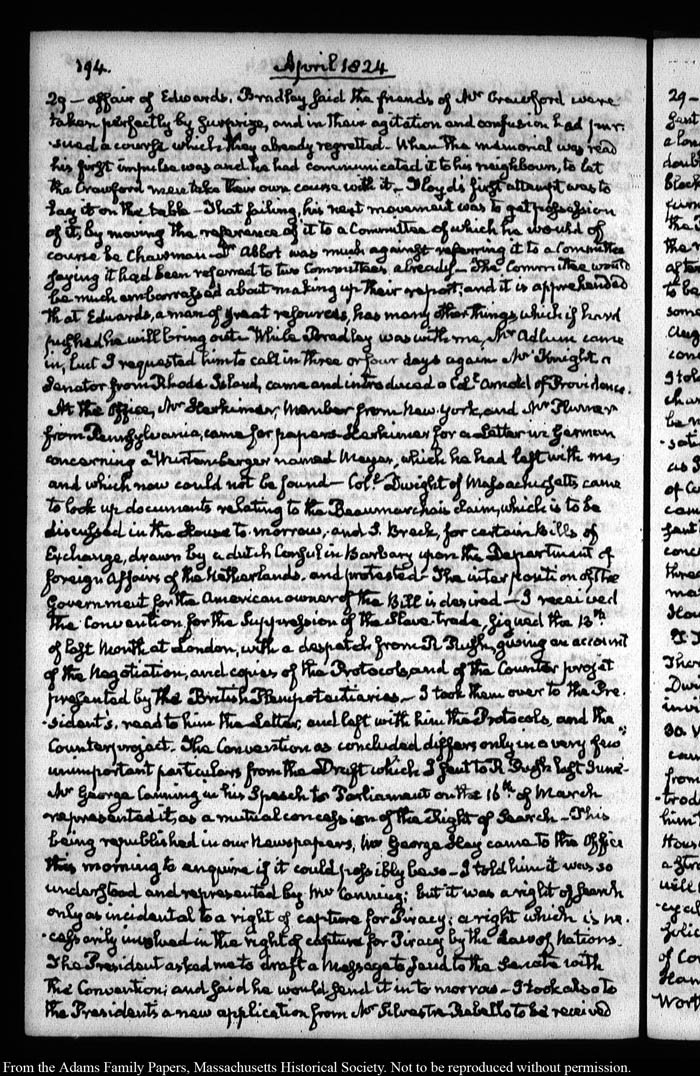 194.
April 1824
29 – affair of Edwards. Bradley said the friends of Mr Crawford were
taken perfectly by surprize, and in their agitation and confusion had pur-
sued a course which they already regretted – When the memorial was read
his first impulse was and he had communicated it to his neighbours, to let
the Crawford men take their own course with it – Lloyd's first attempt was to
lay it on the table – That failing, his next movement was to get possession
of it, by moving the reference of it to a Committee of which he would of
course be Chairman – Mr Abbot was much against referring it to a Committee
saying it had been referred to two Committees already – The Committee would
be much embarrassed about making up their report; and it is apprehended
that Edwards, a man of great resources, has many other things, which if hard
pushed he will bring out. While Bradley was with me, Mr Adlum came
in, but I requested him to call in three or four days again. Mr Knight a
Senator from Rhode Island, came and introduced a Col.l Arnold of Providence.
At the Office, Mr Herkimer, Member from New-York, and Mr Plumer
from Pennsylvania, came for papers – Herkimer for a Letter in German
concerning a Wirtemberger named Meyer, which he had left with me,
and which now could not be found – Col.l Dwight of Massachusetts came
to look up documents relating to the Beaumarchais claim, which is to be
discussed in the House to-morrow, and S. Breck, for certain Bills of
Exchange, drawn by a dutch Consul in Barbary upon the Department of
foreign Affairs of the Netherlands, and protested – The interposition of the
Government for the American owner of the Bill is desired – I received
the Convention for the Suppression of the Slave-trade, signed the 13th
of last Month at London, with a despatch from R Rush, giving an account
of the Negotiation, and copies of the Protocols, and of the Counter projet
presented by the British Plenipotentiaries – I took them over to the Pre-
-sident's, read to him the Letter, and left with him the Protocols, and the
Counterproject. The Convention as concluded differs only in a very few
unimportant particulars from the Draft which I sent to R Rush last June.
Mr George Canning in his Speech to Parliament on the 16th of March
represented it, as a mutual concession of the Right of Search – This
being republished in our Newspapers, Mr George Hay came to the Office
this morning to enquire if it could possibly be so – I told him it was so
understood and represented by Mr Canning; but it was a right of Search
only as incidental to a right of capture for Piracy; a right which is ne-
-cessarily involved in the right of capture for Piracy by the Law of Nations.
The President asked me to draft a Message to send to the Senate with
the Convention; and said he would send it in to morrow – I took also to
the President's a new application from Mr Silvestre Rebello to be received
From the Adams Family Papers, Massachusetts Historical Society. Not to be reproduced without permission.